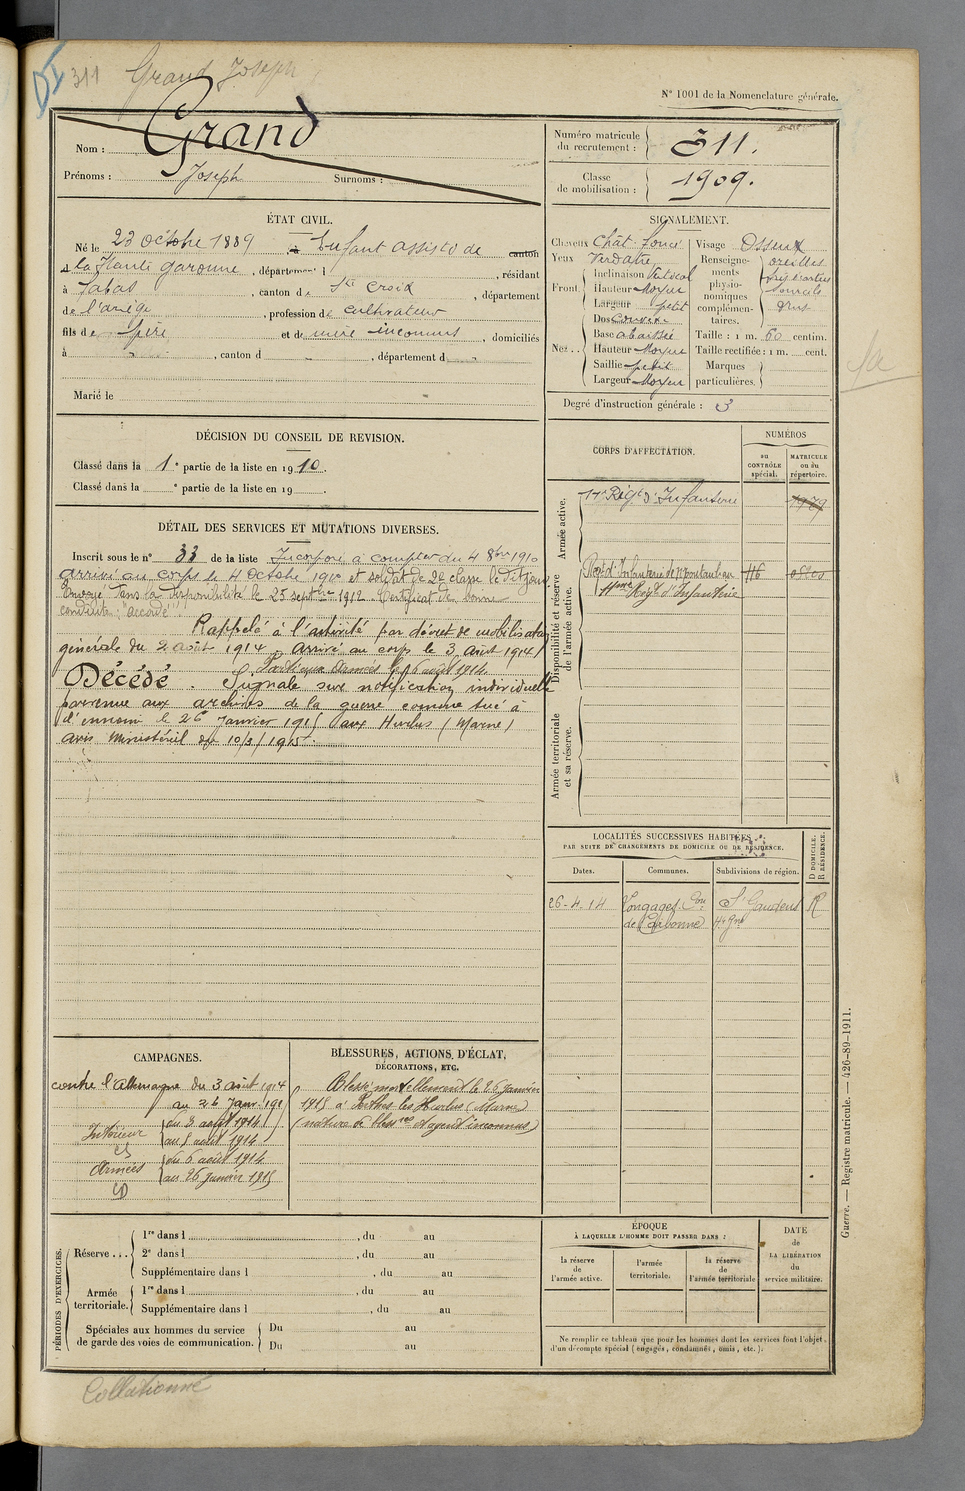 311 Grand Joseph
N° 1001 de la Nomenclature générale.
Nom : Grand
Prénoms : Joseph Surnoms :
Numéro matricule du recrutement : 311.
Classe de mobilisation : 1909.
ÉTAT CIVIL.
Né le 23 Octobre 1889 Enfant assisté de canton
la Haute Garonne, département , résidant
à Fabas, canton de Ste Croix, département
de l'ariège, profession de cultivateur
fils de père et de mère inconnus, domiciliés
à , canton d , département d
Marié le
SIGNALEMENT.
Cheveux Chât. foncé
Yeux Verdâtre
Front Inclinaison Vertical
Hauteur Moyen
Largeur petit
Nez .. Dos
Base abaissée
Hauteur Moyen
Saillie petit
Largeur Moyen
Visage Osseux
Renseignements physionomiques complémentaires. oreilles
sourcils
drus
Taille : 1 m. 60 centim.
Taille rectifiée : 1 m. cent.
Marques particulières.
Degré d'instruction générale : 3
DÉCISION DU CONSEIL DE REVISION.
Classé dans la 1e partie de la liste en 1910.
Classé dans la e partie de la liste en 19 .
DÉTAIL DES SERVICES ET MUTATIONS DIVERSES.
Inscrit sous le n° 33 de la liste Incorporé à compter du 4 8bre 1910
arrivé au corps le 4 Octobre 1910 et soldat de 2e classe le dit jour
Envoyé dans la disponibilité le 25 septbre 1912 Certificat de bonne
conduite : "accordé".
Rappelé à l'activité par décret de mobilisation
générale du 2 août 1914, arrivé au corps le 3 août 1914
Parti aux Armées le 6 août 1914.
Décédé. Signalé sur notification individuelle
parvenue aux archives de la guerre comme tué à
l'ennemi le 26 Janvier 1915 aux Hurlus (Marne)
avis Ministériel du 10/3/1915.
CORPS D'AFFECTATION.
NUMÉROS
au CONTRÔLE spécial.
MATRICULE ou au répertoire.
Armée active.
11e Régt d'Infanterie 1979
Disponibilité et réserve de l'armée active.
Régt d'Infanterie de Montauban 116
11eme Régt d'Infanterie
Armée territoriale et sa réserve.
LOCALITÉS SUCCESSIVES HABITÉES
PAR SUITE DE CHANGEMENTS DE DOMICILE OU DE RÉSIDENCE.
Dates. Communes. Subdivisions de région. D DOMICILE. R RÉSIDENCE.
26-4-14 Longages Con St Gaudens R
de Carbonne Hte Gne
CAMPAGNES.
contre l'Allemagne du 3 août 1914
au 26 Janv. 1915
Intérieur du 3 août 1914
au 5 août 1914
Armées du 6 août 1914
au 26 janvier 1915
BLESSURES, ACTIONS D'ÉCLAT,
DÉCORATIONS, ETC.
Blessé mortellement le 26 Janvier
1915 à Perthes les Hurlus (Marne)
(nature de blessre et agent inconnus)
PÉRIODES D'EXERCICES.
Réserve ... 1re dans l , du au
2e dans l , du au
Supplémentaire dans l , du au
Armée territoriale. 1re dans l , du au
Supplémentaire dans l , du au
Spéciales aux hommes du service de garde des voies de communication. Du au
Du au
ÉPOQUE
À LAQUELLE L'HOMME DOIT PASSER DANS :
la réserve de l'armée active.
l'armée territoriale.
la réserve de l'armée territoriale
DATE de LA LIBÉRATION du service militaire.
Ne remplir ce tableau que pour les hommes dont les services font l'objet
d'un décompte spécial (engagés, condamnés, omis, etc.).
Guerre. — Registre matricule. — 426-89-1911.
Collationné